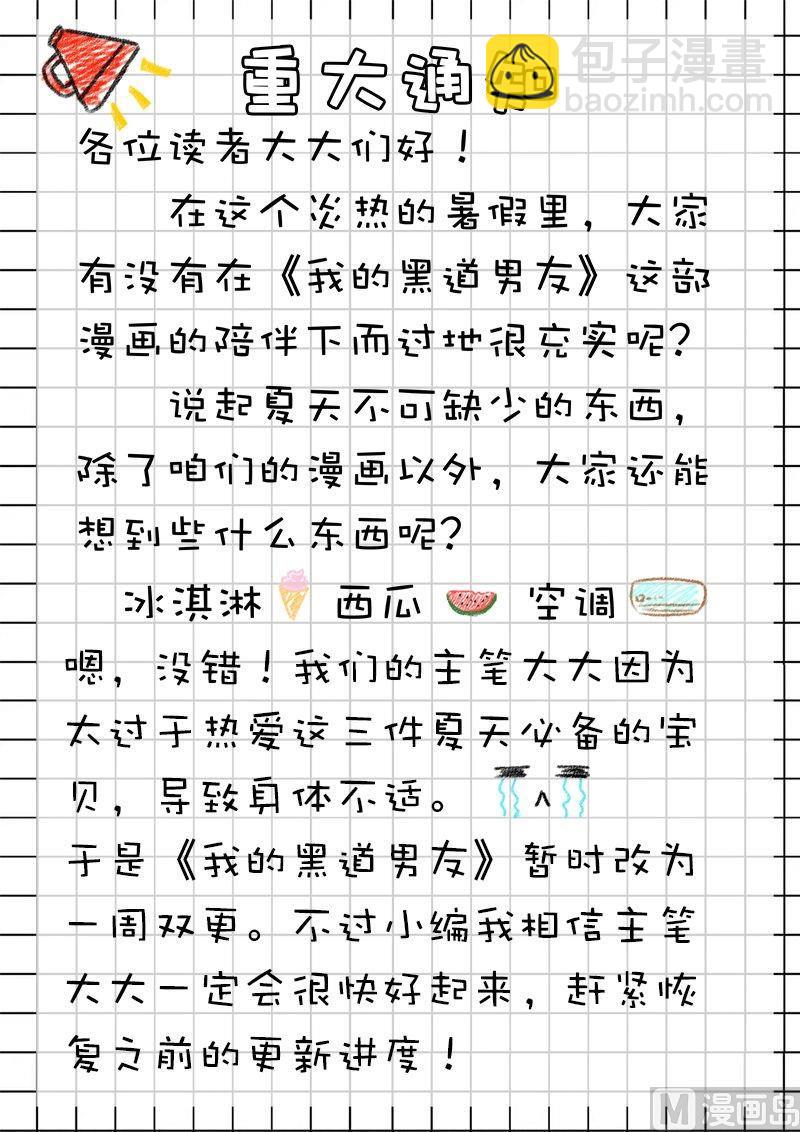 重大通
包子漫畫
baozimh.com
各位读者大大们好！
在这个炎热的暑假里，大家
有没有在《我的黑道男友》这部
漫画的陪伴下而过地很充实呢？
说起夏天不可缺少的东西，
除了咱们的漫画以外，大家还能
想到些什么东西呢？
冰淇淋 西瓜 空调
嗯，没错！我们的主笔大大因为
太过于热爱这三件夏天必备的宝
贝，导致身体不适。
于是《我的黑道男友》暂时改为
一周双更。不过小编我相信主笔
大大一定会很快好起来，赶紧恢
复之前的更新进度！
M 漫画岛